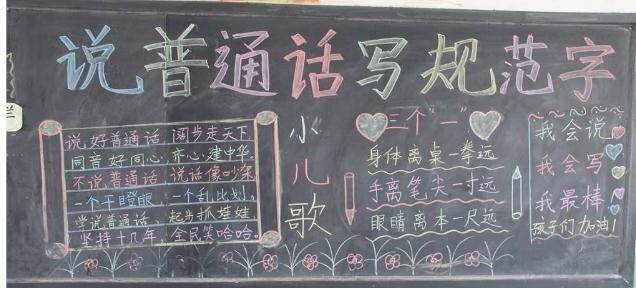 说普通话写规范字
说好普通话，阔步走天下。
同音好同心，齐心建中华。
不说普通话，说话像吵架。
一个干瞪眼，一个乱比划。
学说普通话，起步抓娃娃。
坚持十几年，全民笑哈哈。
小儿歌
三个"一"
身体离桌一拳远
手离笔尖一寸远
眼睛离本一尺远
我会说
我会写
我最棒
孩子们加油！